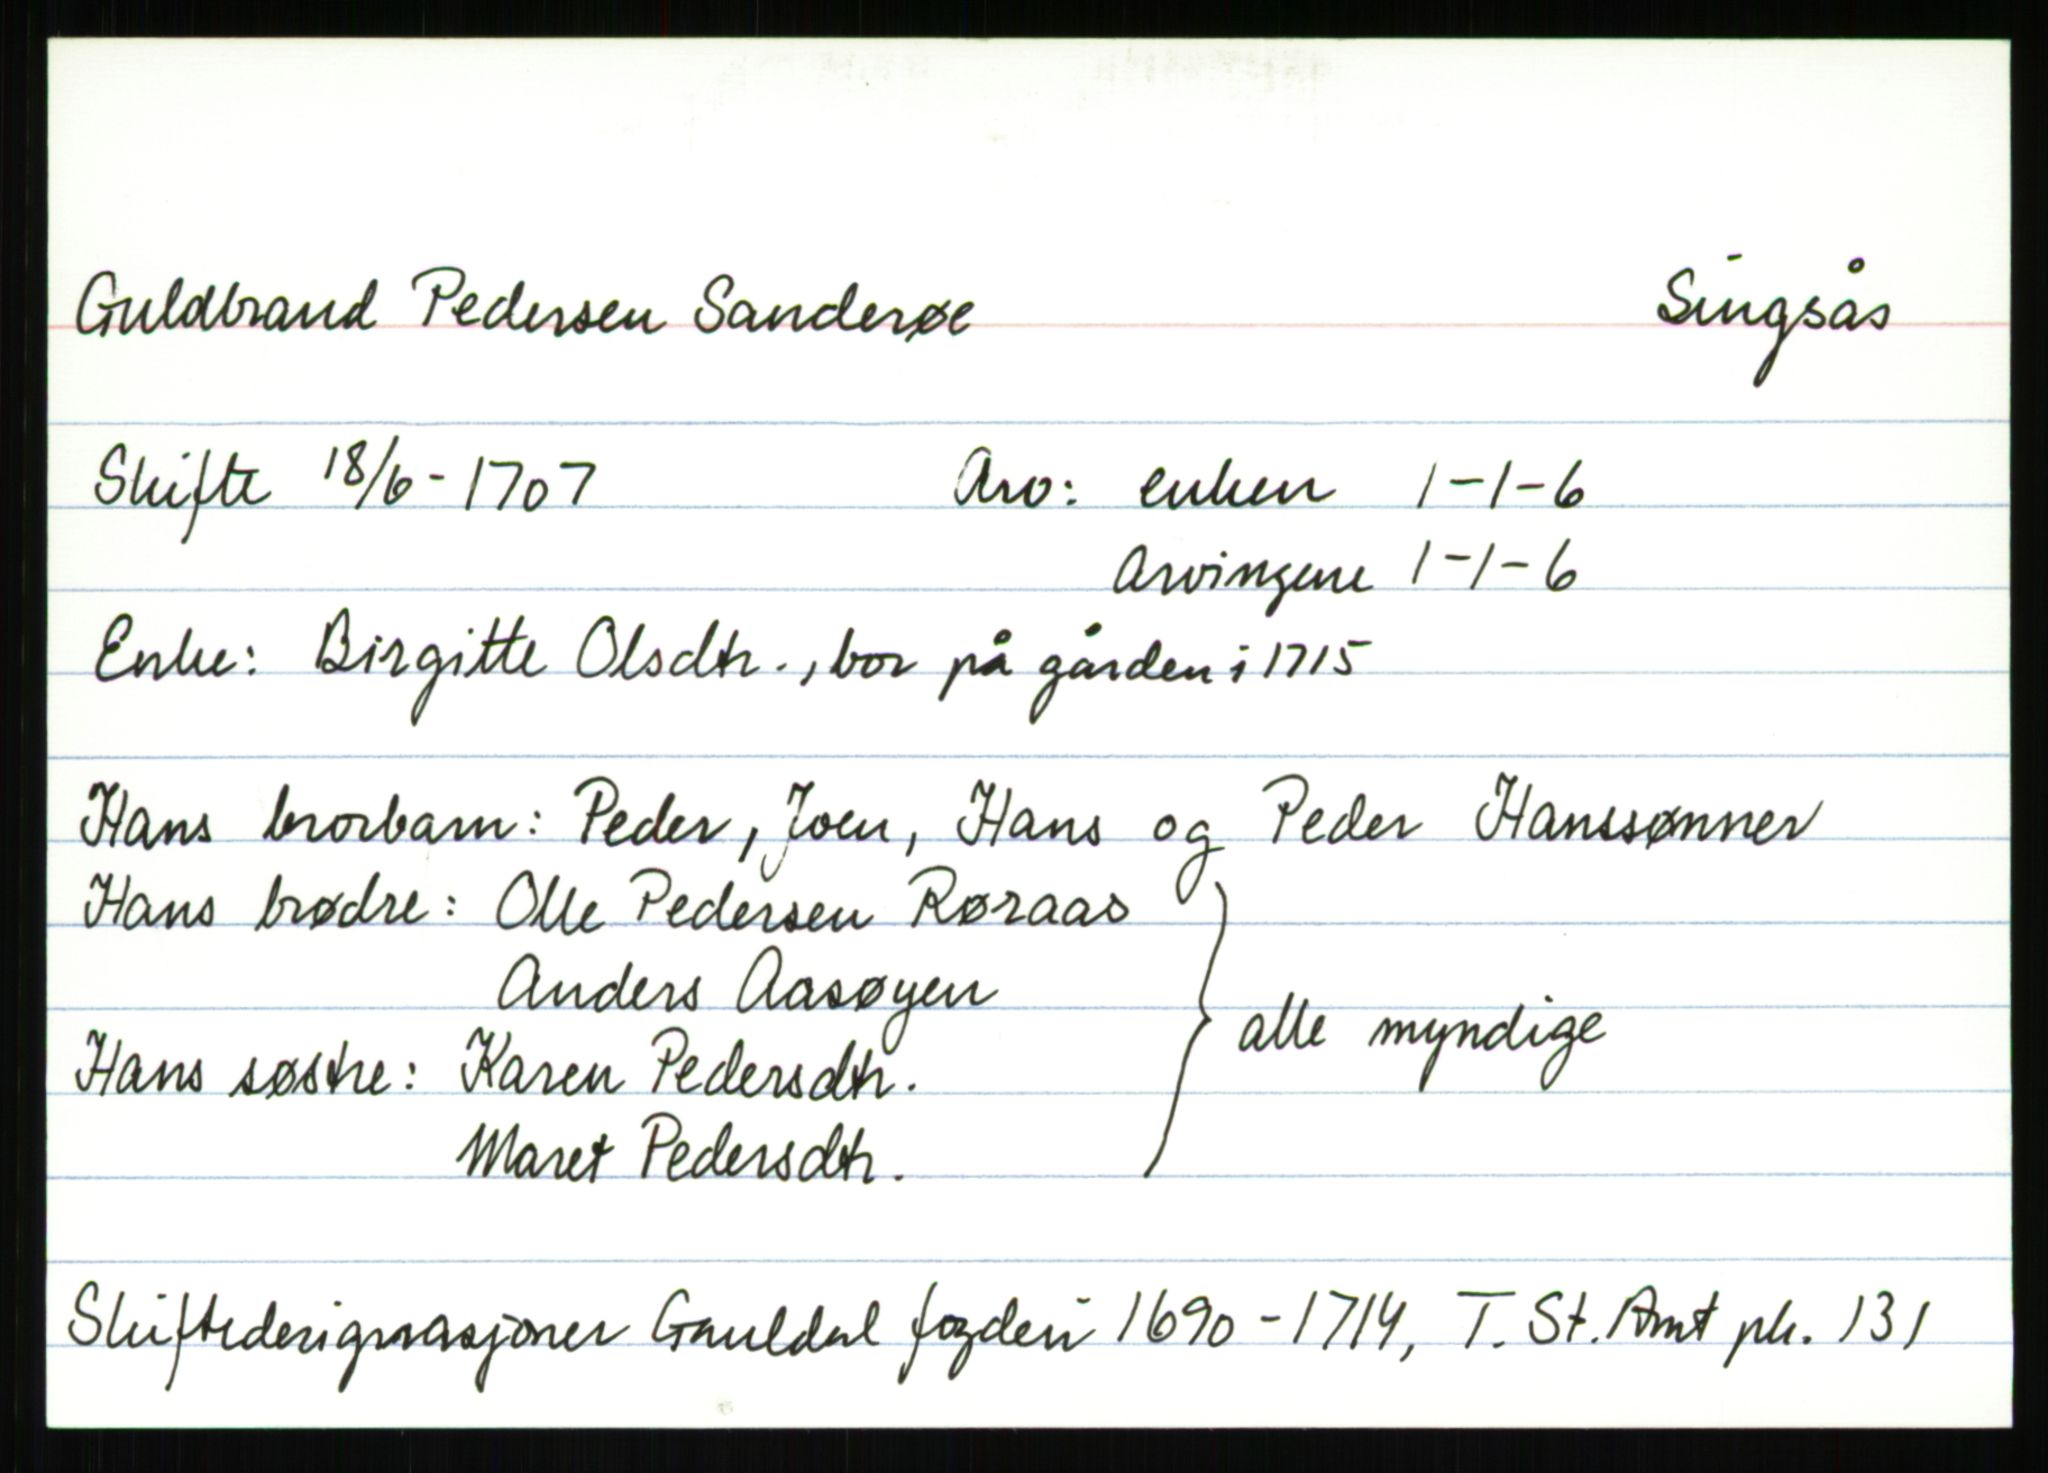 Guldbrand Pedersen Sanderøe Singsås
Skifte 18/6-1707 Arv: enken 1-1-6
Arvingene 1-1-6
Enke: Birgitte Olsdtr., bor på gården i 1715
Hans brorbarn: Peder, Joen, Hans og Peder Hanssønner
Hans brødre: Olle Pedersen Røraas
Anders Aasøyen
alle myndige
Hans søstre: Karen Pedersdtr.
Maret Pedersdtr.
Skiftedesignasjoner Gauldal fogderi 1690-1714, T. St. Amt pk. 131